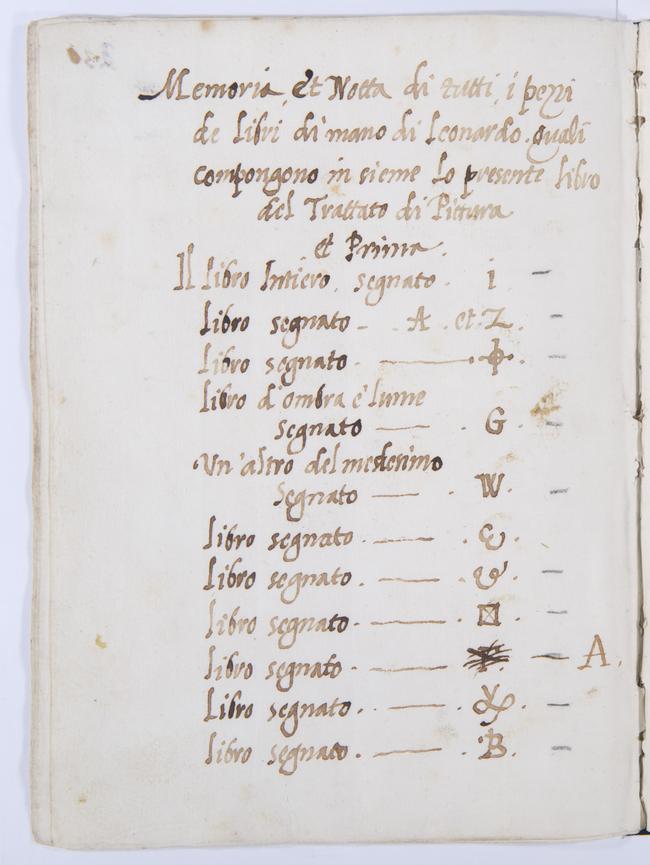 Memoria, Et Notta di tutti, i pezzi
de libri di mano di Leonardo. quali
compongono in sieme lo presente libro
del Trattato di Pittura
et Prima.
Il libro Intiero, segnato. i
Libro segnato - A. et. Z.
Libro segnato.
Libro d'ombra e' lume
segnato — . G.
Un'altro del medesimo
segnato — . W.
libro segnato. —
Libro segnato. —
libro segnato. —
libro segnato. — A.
Libro segnato. . —
libro segnato. — . B.